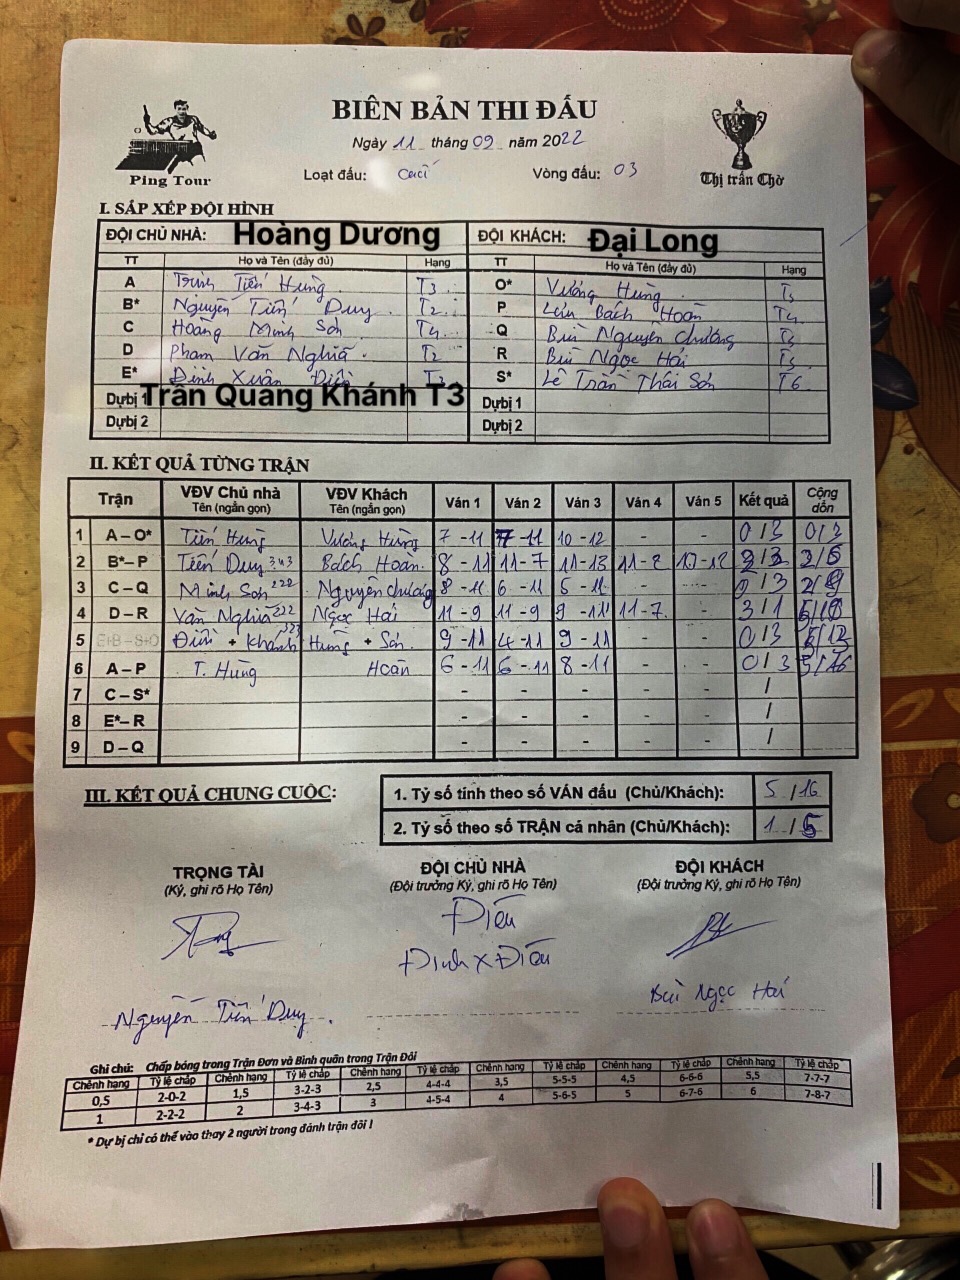 BIÊN BẢN THI ĐẤU
Ngày 11 tháng 09 năm 2022
Ping Tour
Loạt đấu: Vòng đấu: 03
Thị trấn Chờ
I. SẮP XẾP ĐỘI HÌNH
ĐỘI CHỦ NHÀ: Hoàng Dương ĐỘI KHÁCH: Đại Long
TT Họ và Tên (đầy đủ) Hạng TT Họ và Tên (đầy đủ) Hạng
A Trịnh Tiến Hùng T3 O* Vương Hùng
B* Nguyễn Tiến Duy T2 P Lưu Bách Hoàn T4
C Hoàng Minh Sơn T4 Q Bùi Nguyên Chương
D Phạm Văn Nghĩa T2 R Bùi Ngọc Hải
E* Đinh Xuân Điều S* Lê Trần Thái Sơn T6
Dự bị 1 Trần Quang Khánh T3 Dự bị 1
Dự bị 2 Dự bị 2
II. KẾT QUẢ TỪNG TRẬN
Trận VĐV Chủ nhà Tên (ngắn gọn) VĐV Khách Tên (ngắn gọn) Ván 1 Ván 2 Ván 3 Ván 4 Ván 5 Kết quả Cộng dồn
1 A – O* Tiến Hùng Vương Hùng 7 - 11 7 - 11 10 - 12 - - 0 / 3 0/3
2 B* – P Tiến Duy 343 Bách Hoàn 8 - 11 11 - 7 11 - 13 11 - 2 10 - 12 2/3 2/6
3 C – Q Minh Sơn 222 Nguyên Chương 8 - 11 6 - 11 5 - 11 - - 0 / 3 2/9
4 D – R Văn Nghĩa 222 Ngọc Hải 11 - 9 11 - 9 9 - 11 11 - 7 - 3 / 1 5/10
5 Điều + Khánh 323 Hùng + Sơn 9 - 11 4 - 11 9 - 11 - - 0 / 3 5/13
6 A – P T. Hùng Hoàn 6 - 11 6 - 11 8 - 11 - - 0 / 3 5/16
7 C – S* - - - - - /
8 E* – R - - - - - /
9 D – Q - - - - - /
III. KẾT QUẢ CHUNG CUỘC:
1. Tỷ số tính theo số VÁN đấu (Chủ/Khách): 5 / 16
2. Tỷ số theo số TRẬN cá nhân (Chủ/Khách): 1 / 5
TRỌNG TÀI ĐỘI CHỦ NHÀ ĐỘI KHÁCH
(Ký, ghi rõ Họ Tên) (Đội trưởng Ký, ghi rõ Họ Tên) (Đội trưởng Ký, ghi rõ Họ Tên)
Điều
Đinh X Điều
Nguyễn Tiến Duy Bùi Ngọc Hải
Ghi chú: Chấp bóng trong Trận Đơn và Bình quân trong Trận Đôi
Chênh hạng Tỷ lệ chấp Chênh hạng Tỷ lệ chấp Chênh hạng Tỷ lệ chấp Chênh hạng Tỷ lệ chấp Chênh hạng Tỷ lệ chấp Chênh hạng Tỷ lệ chấp
0,5 2-0-2 1,5 3-2-3 2,5 4-4-4 3,5 5-5-5 4,5 6-6-6 5,5 7-7-7
1 2-2-2 2 3-4-3 3 4-5-4 4 5-6-5 5 6-7-6 6 7-8-7
* Dự bị chỉ có thể vào thay 2 người trong đánh trận đôi !